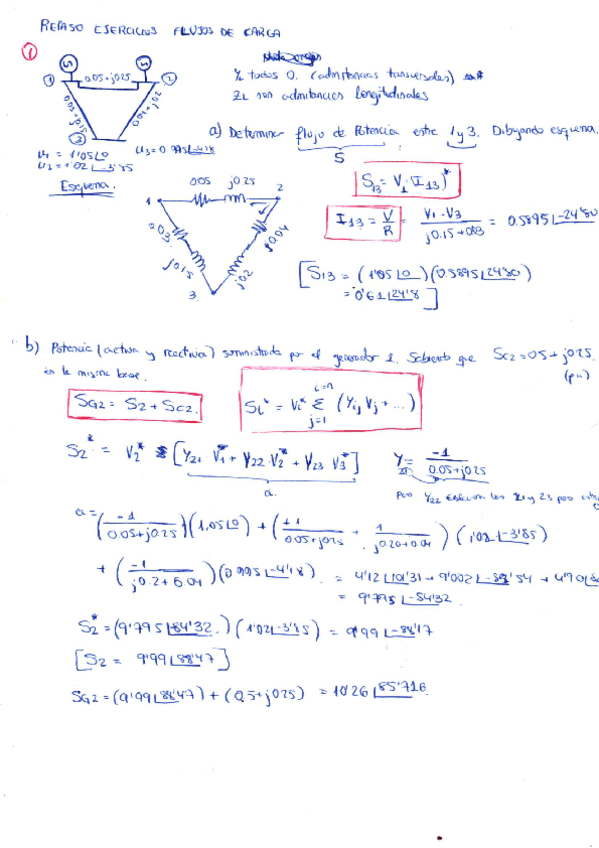 REPASO EJERCICIOS FLUJOS DE CARGA
1
S S
0.05+j0.25
1 2
0.03+j0.15
0.04+j0.2
3
U1 = 1'05∠0 U3=0'995∠-4'18
U2=1'02∠-3'85
Y todos 0. (admitancias transversales)
ZL son admitancias longitudinales
a) Determinar flujo de Potencia entre 1 y 3. Dibujando esquema.
S
Esquema.
0.05 j0.25
1 2
0.03 j0.15
0.04 j0.2
3
S13 = V1·(I13)*
I13 = V/R = V1-V3 / j0.15+0.03 = 0.5895∠-24'80
[S13 = (1'05∠0)(0.5895∠24'80)
= 0'61∠24'8 ]
b) Potencia (activa y reactiva) suministrada por el generador 2. Sabiendo que SC2 = 0.5 + j0.25
en la misma base. (pu)
SG2 = S2 + SC2.
Si* = Vi* Σ (Yij Vj + ...)
i=n
j=1
S2* = V2* [Y21 V1* + Y22·V2* + Y23 V3*]
a.
Y21 = -1 / 0.05+j0.25
a = (-1 / 0.05+j0.25)(1.05∠0) + (+1 / 0.05+j0.25 + 1 / j0.20+0.04) (1'02∠-3'85)
+ (-1 / j0.2+0.04)(0.995∠-4'18) = 4'12∠101'31 + 9'002∠-82'54 +
= 9'795∠-84'32
S2* = (9'795∠-84'32)(1'02∠-3'85) = 9'99∠-88'17
[S2 = 9'99∠88'47]
SG2 = (9'99∠88'47) + (0,5+j0.25) = 10'26∠85'716